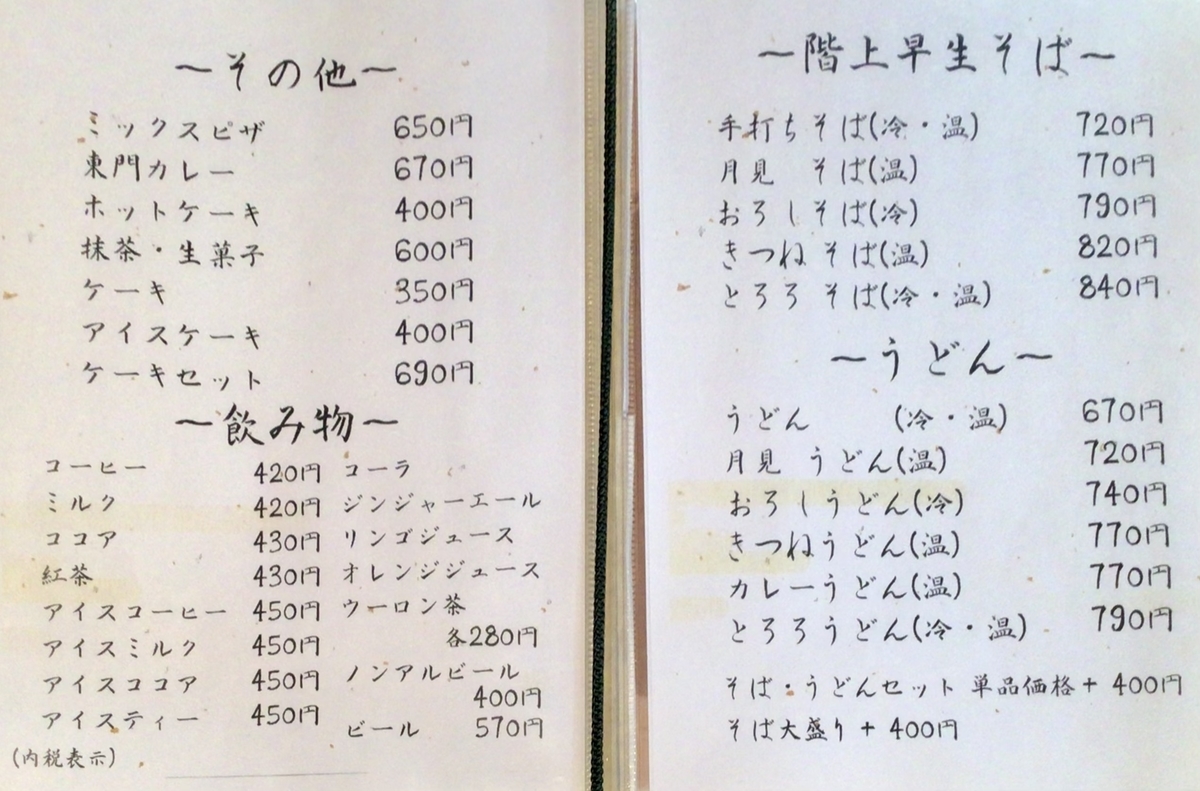 ～その他～
ミックスピザ 650円
東門カレー 670円
ホットケーキ 400円
抹茶・生菓子 600円
ケーキ 350円
アイスケーキ 400円
ケーキセット 690円
～飲み物～
コーヒー 420円
ミルク 420円
ココア 430円
紅茶 430円
アイスコーヒー 450円
アイスミルク 450円
アイスココア 450円
アイスティー 450円
コーラ
ジンジャーエール
リンゴジュース
オレンジジュース
ウーロン茶
各280円
ノンアルビール
400円
ビール 570円
(内税表示)
～階上早生そば～
手打ちそば(冷・温) 720円
月見 そば(温) 770円
おろしそば(冷) 790円
きつねそば(温) 820円
とろろそば(冷・温) 840円
～うどん～
うどん (冷・温) 670円
月見 うどん(温) 720円
おろしうどん(冷) 740円
きつねうどん(温) 770円
カレーうどん(温) 770円
とろろうどん(冷・温) 790円
そば・うどんセット 単品価格＋400円
そば大盛り＋400円